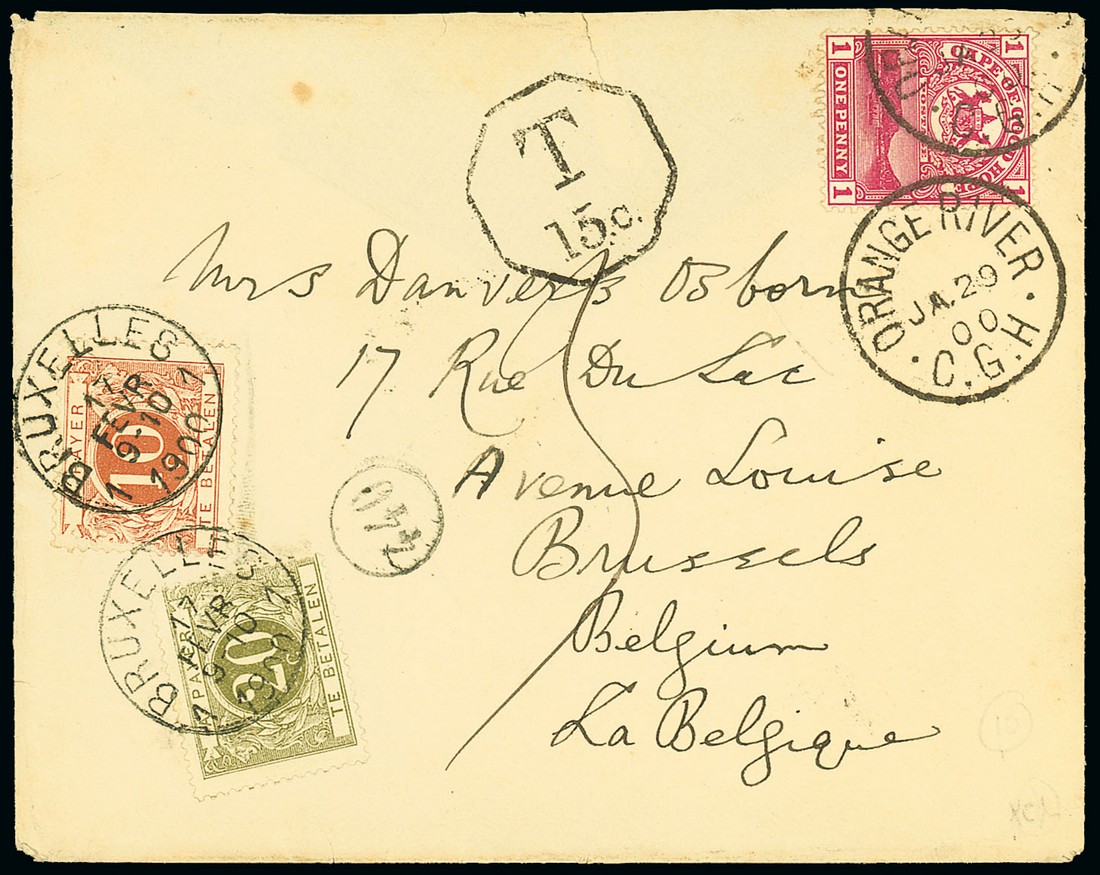 T
15.c.
CAPE OF GOOD HOPE
1 ONE PENNY 1
1 1
ORANGE RIVER
JA.29
00
C.G.H
Mrs Danvers Osborn
17 Rue Du Lac
Avenue Louise
Brussels
Belgium
La Belgique
BRUXELLES
17
FEVR
9-10
1900
1 1
PAYER
10
TE BETALEN
BRUXELLES
17
FEVR
9-10
1900
1 1
A PAYER
20
TE BETALEN